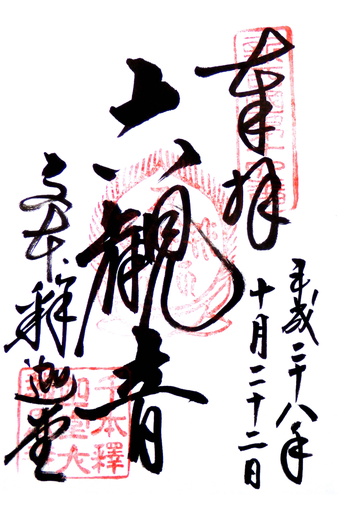 奉拝
平成二十八年
十月二十二日
六観音
千本釋迦堂
千本釋
迦堂大